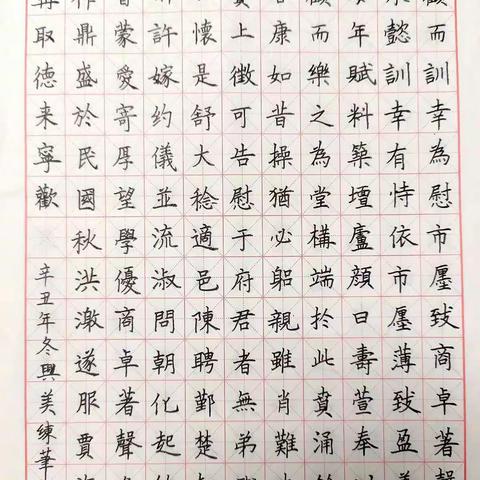 而訓幸為慰市廛致商卓著聲
懿訓幸有恃依市廛薄致盈
年賦料築壇廬顔曰壽萱奉
顧而樂之為堂構端於此賁涌
康如昔操猶必躬親雖肖難
上徵可告慰于府君者無弟
懷是舒大稔適邑陳聘鄞楚
許嫁约儀並流淑問朝化起
蒙愛寄厚望學優商卓著聲
鼎盛於民國秋洪激遂服賈
取德来寧歡
辛丑年冬興美練筆